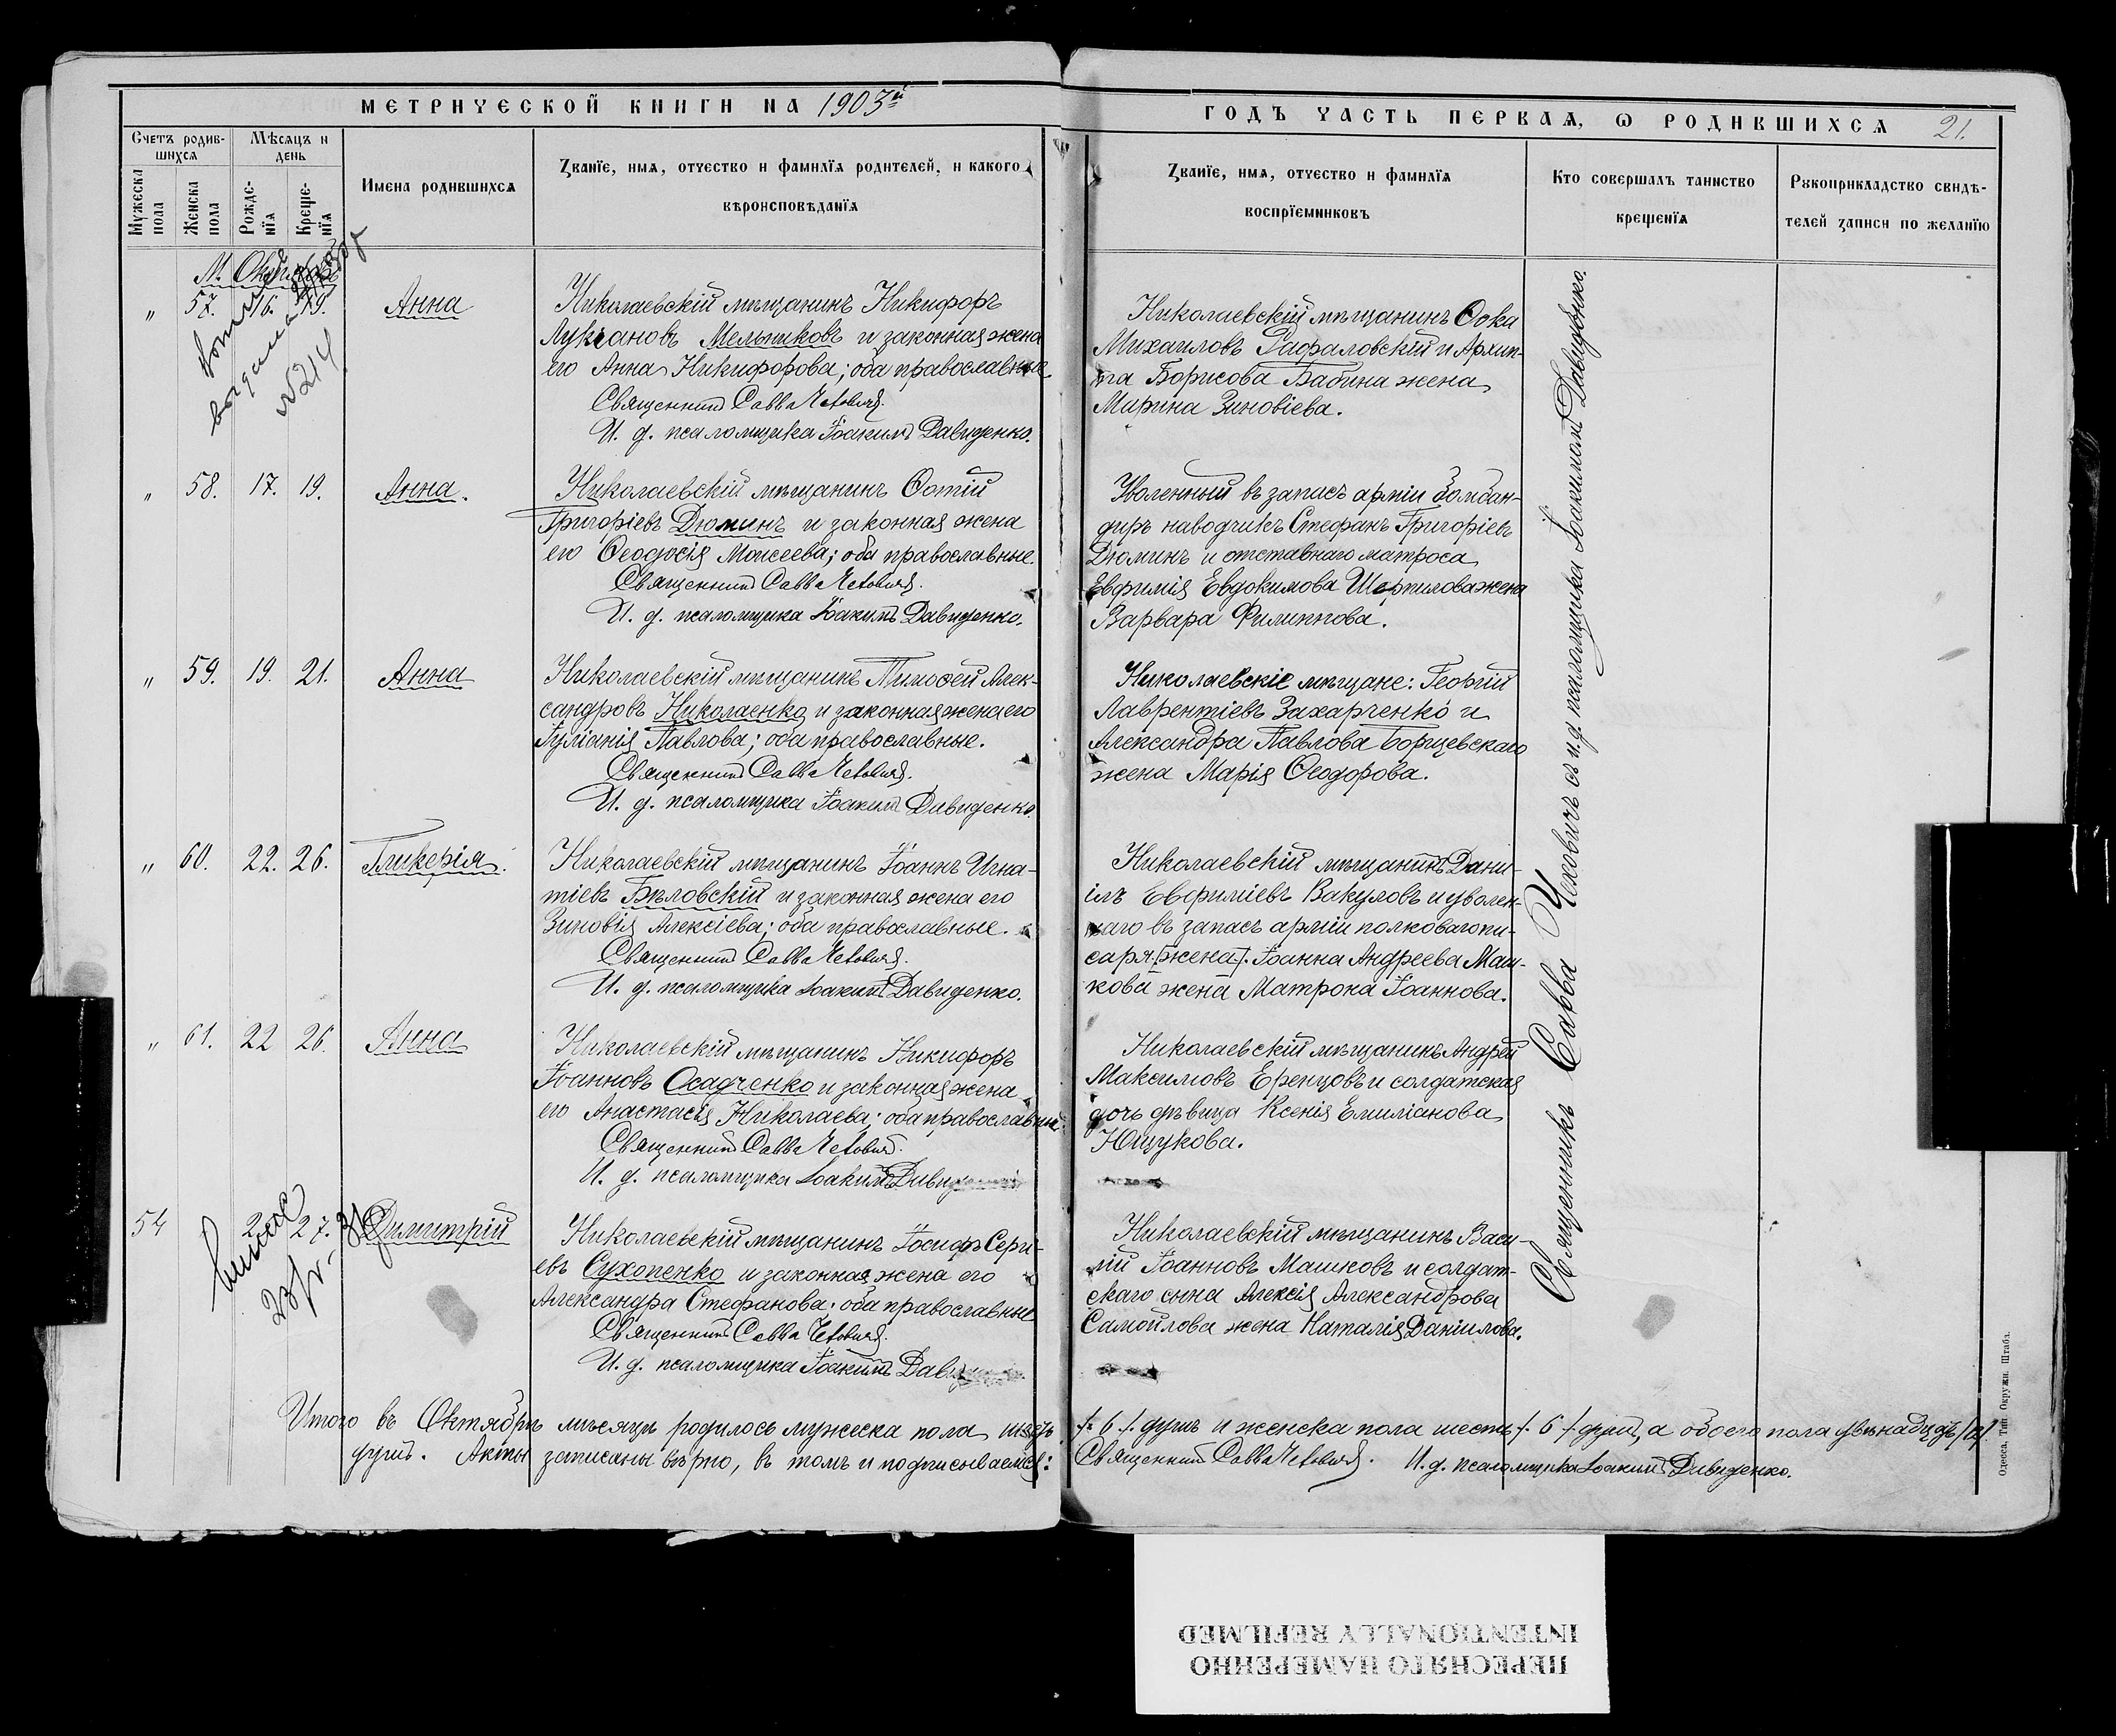 МЕТРИЧЕСКОЙ КНИГИ НА 1903й
ГОДЪ ЧАСТЬ ПЕРВАѦ, Ѡ РОДИВШИХСѦ 21.
Счетъ родив-
шихсѧ
Мѣсѧцъ и
день
Мꙋжеска пола
Женска пола
Рожде-
нїѧ
Креще-
нїѧ
Имена родившихсѧ
Званїе, имѧ, отчество и фамилїѧ родителей, и какого
вѣроисповѣданїѧ
Званїе, имѧ, отчество и фамилїѧ
воспрїемниковъ
Кто совершалъ таинство
крещенїѧ
Рꙋкоприкладство свидѣ-
телей записи по желанїю
М. Октябрь
„ 57. 16. 19. Анна
выдана
№ 214
Николаевскій мѣщанинъ Никифоръ
Лукіановъ Мельниковъ и законная жена
его Анна Никифорова; оба православные
Священникъ Савва Чеховичъ.
И. д. псаломщика Іоакимъ Давиденко.
Николаевскій мѣщанинъ Ѳока
Михаиловъ Рафаловскій и Архип-
па Борисова Бабина жена
Марина Зиновіева.
„ 58. 17. 19. Анна.
Николаевскій мѣщанинъ Ѳотій
Григоріевъ Дюминъ и законная жена
его Ѳеодосія Моисеева; оба православные.
Священникъ Савва Чеховичъ.
И. д. псаломщика Іоакимъ Давиденко.
Уволенный въ запасъ арміи бомбан-
диръ наводчикъ Стефанъ Григоріевъ
Дюминъ и отставнаго матроса
Евфимія Евдокимова Шерпилова жена
Варвара Филиппова.
„ 59. 19. 21. Анна
Николаевскій мѣщанинъ Тимоѳей Алек-
сандровъ Николаенко и законная жена его
Іуліанія Павлова; оба православные.
Священникъ Савва Чеховичъ.
И. д. псаломщика Іоакимъ Давиденко.
Николаевскіе мѣщане: Георгій
Лаврентіевъ Захарченко и
Александра Павлова Борщевскаго
жена Марія Ѳеодорова.
„ 60. 22. 26. Гликерія.
Николаевскій мѣщанинъ Іоаннъ Игна-
тіевъ Бѣловскій и законная жена его
Зиновія Алексіева; оба православные.
Священникъ Савва Чеховичъ.
И. д. псаломщика Іоакимъ Давиденко.
Николаевскій мѣщанинъ Дани-
илъ Евфиміевъ Вакуловъ и уволен-
наго въ запасъ арміи полковаго пи-
саря [жена]. Іоанна Андреева Маш-
кова жена Матрона Іоаннова.
„ 61. 22 26. Анна
Николаевскій мѣщанинъ Никифоръ
Іоанновъ Осадченко и законная жена
его Анастасія Николаева; оба православные.
Священникъ Савва Чеховичъ.
И. д. псаломщика Іоакимъ Давид
Николаевскій мѣщанинъ Андрей
Максимовъ Еренцовъ и солдатская
дочь дѣвица Ксенія Емиліанова
Ющукова.
54 2 27. Димитрій
Николаевскій мѣщанинъ Іосифъ Серги-
евъ Сухопенко и законная жена его
Александра Стефанова; оба православные
Священникъ Савва Чеховичъ.
И. д. псаломщика Іоакимъ Давид
Николаевскій мѣщанинъ Васи-
лій Іоанновъ Машковъ и солдат-
скаго сына Алексія Александрова
Самойлова жена Наталія Даніилова.
Священникъ Савва Чеховичъ съ и. д. псаломщика Іоакимомъ Давиденко.
Итого въ Октябрѣ мѣсяцѣ родилось мужеска пола шесть /. 6 /. душъ и женска пола шесть /. 6 /. душъ, а обоего пола двѣнадцать /12/
душъ. Акты записаны вѣрно, въ томъ и подписываемся: Священникъ Савва Чеховичъ. И. д. псаломщика Іоакимъ Давиденко.
Одесса, Тип. Окружн. Штаба.
ПЕРЕСНЯТО НАМЕРЕННО
INTENTIONALLY REFILMED